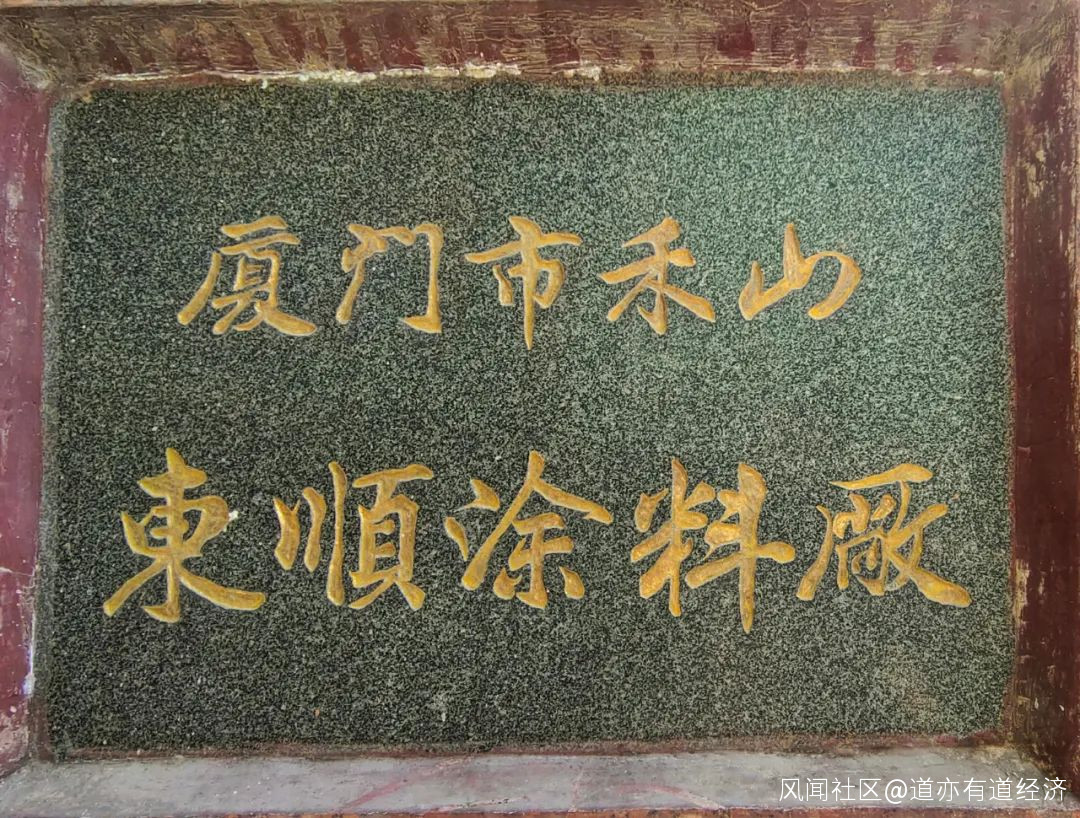 厦门市禾山
東順涂料厰
风闻社区@道亦有道经济